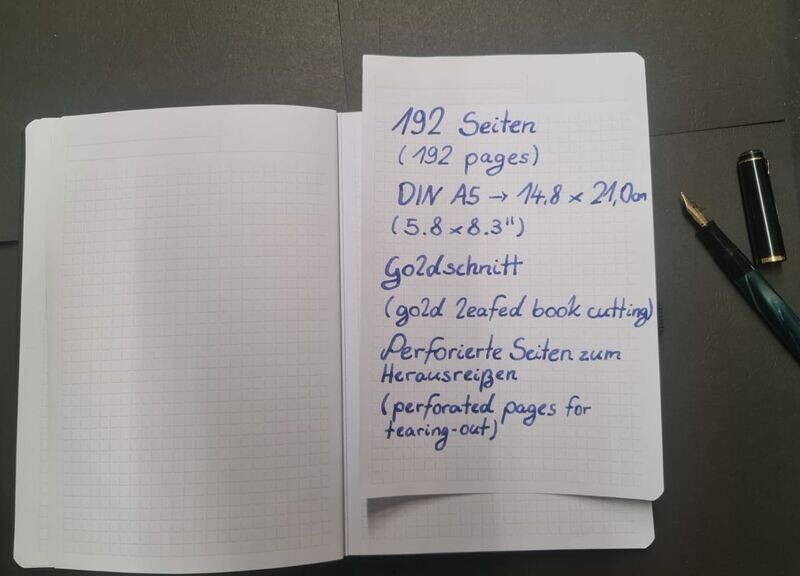 192 Seiten
(192 pages)
DIN A5 → 14.8 x 21,0cm
(5.8 x 8.3")
Goldschnitt
(gold leafed book cutting)
Perforierte Seiten zum
Herausreißen
(perforated pages for
tearing-out)